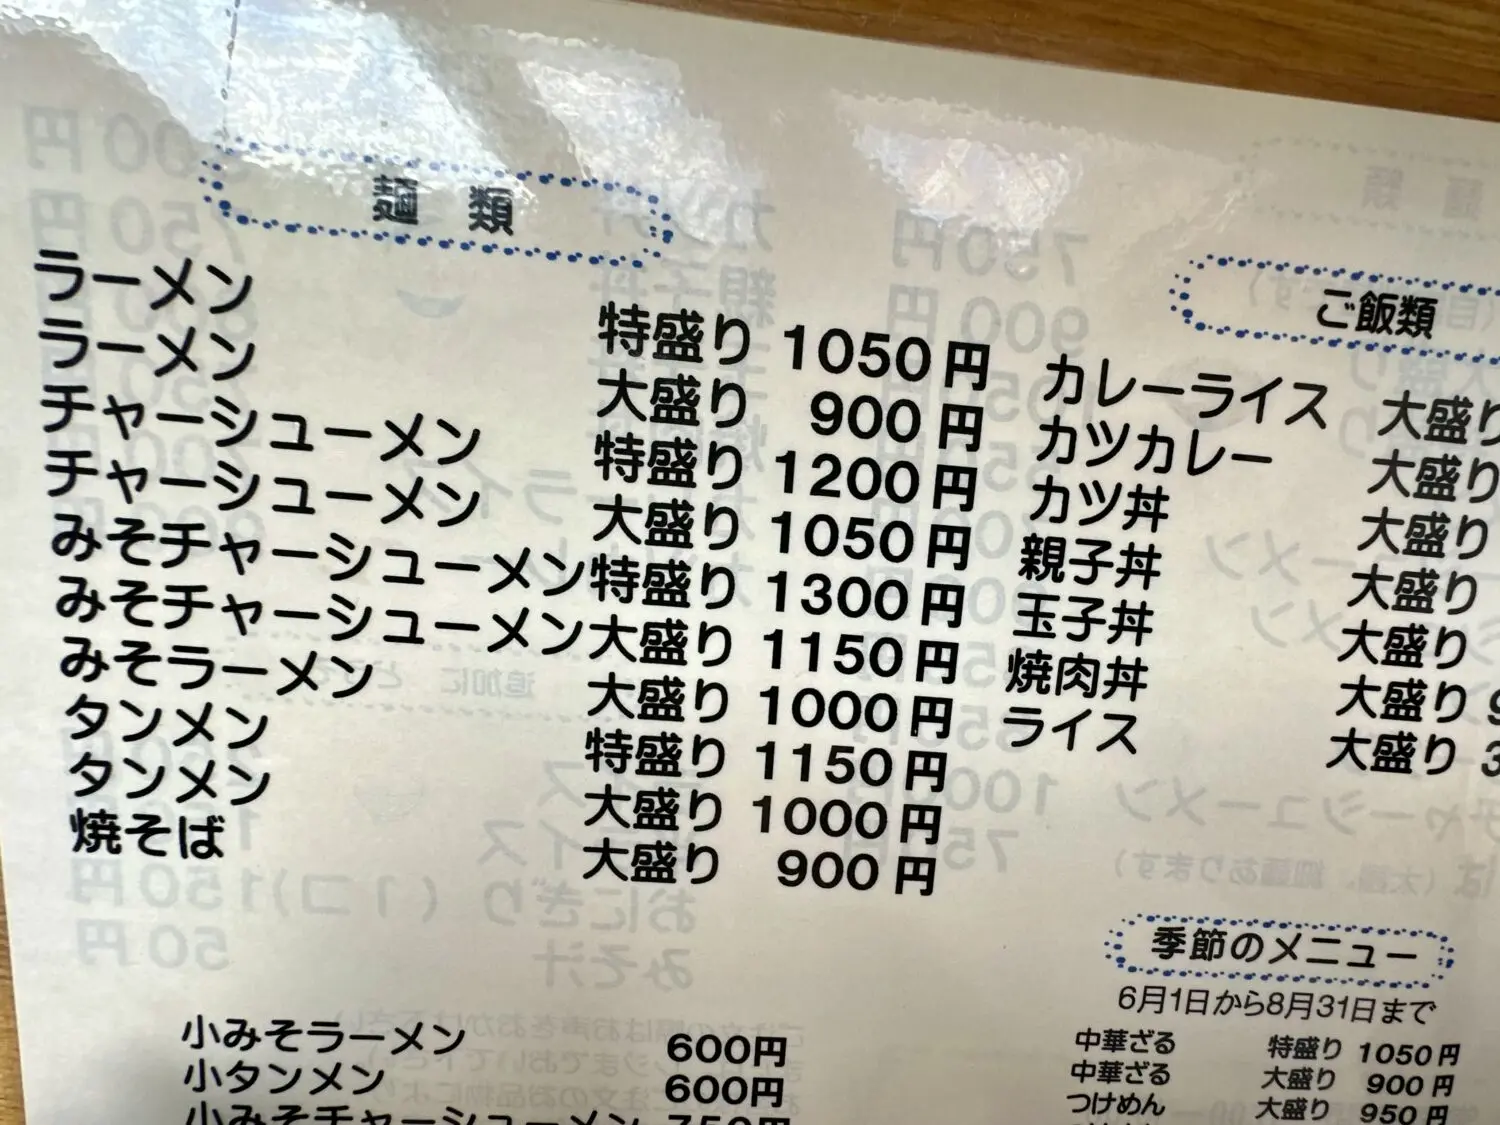 麺 類
ラーメン 特盛り 1050円
ラーメン 大盛り 900円
チャーシューメン 特盛り 1200円
チャーシューメン 大盛り 1050円
みそチャーシューメン 特盛り 1300円
みそチャーシューメン 大盛り 1150円
みそラーメン 大盛り 1000円
タンメン 特盛り 1150円
タンメン 大盛り 1000円
焼そば 大盛り 900円
小みそラーメン 600円
小タンメン 600円
小みそチャーシューメン 750円
ご飯類
カレーライス 大盛り
カツカレー 大盛り
カツ丼 大盛り
親子丼 大盛り
玉子丼 大盛り
焼肉丼 大盛り
ライス 大盛り
季節のメニュー
6月1日から8月31日まで
中華ざる 特盛り 1050円
中華ざる 大盛り 900円
つけめん 大盛り 950円